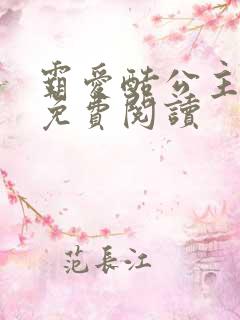 霸愛酷公主
免費閱讀
范長江